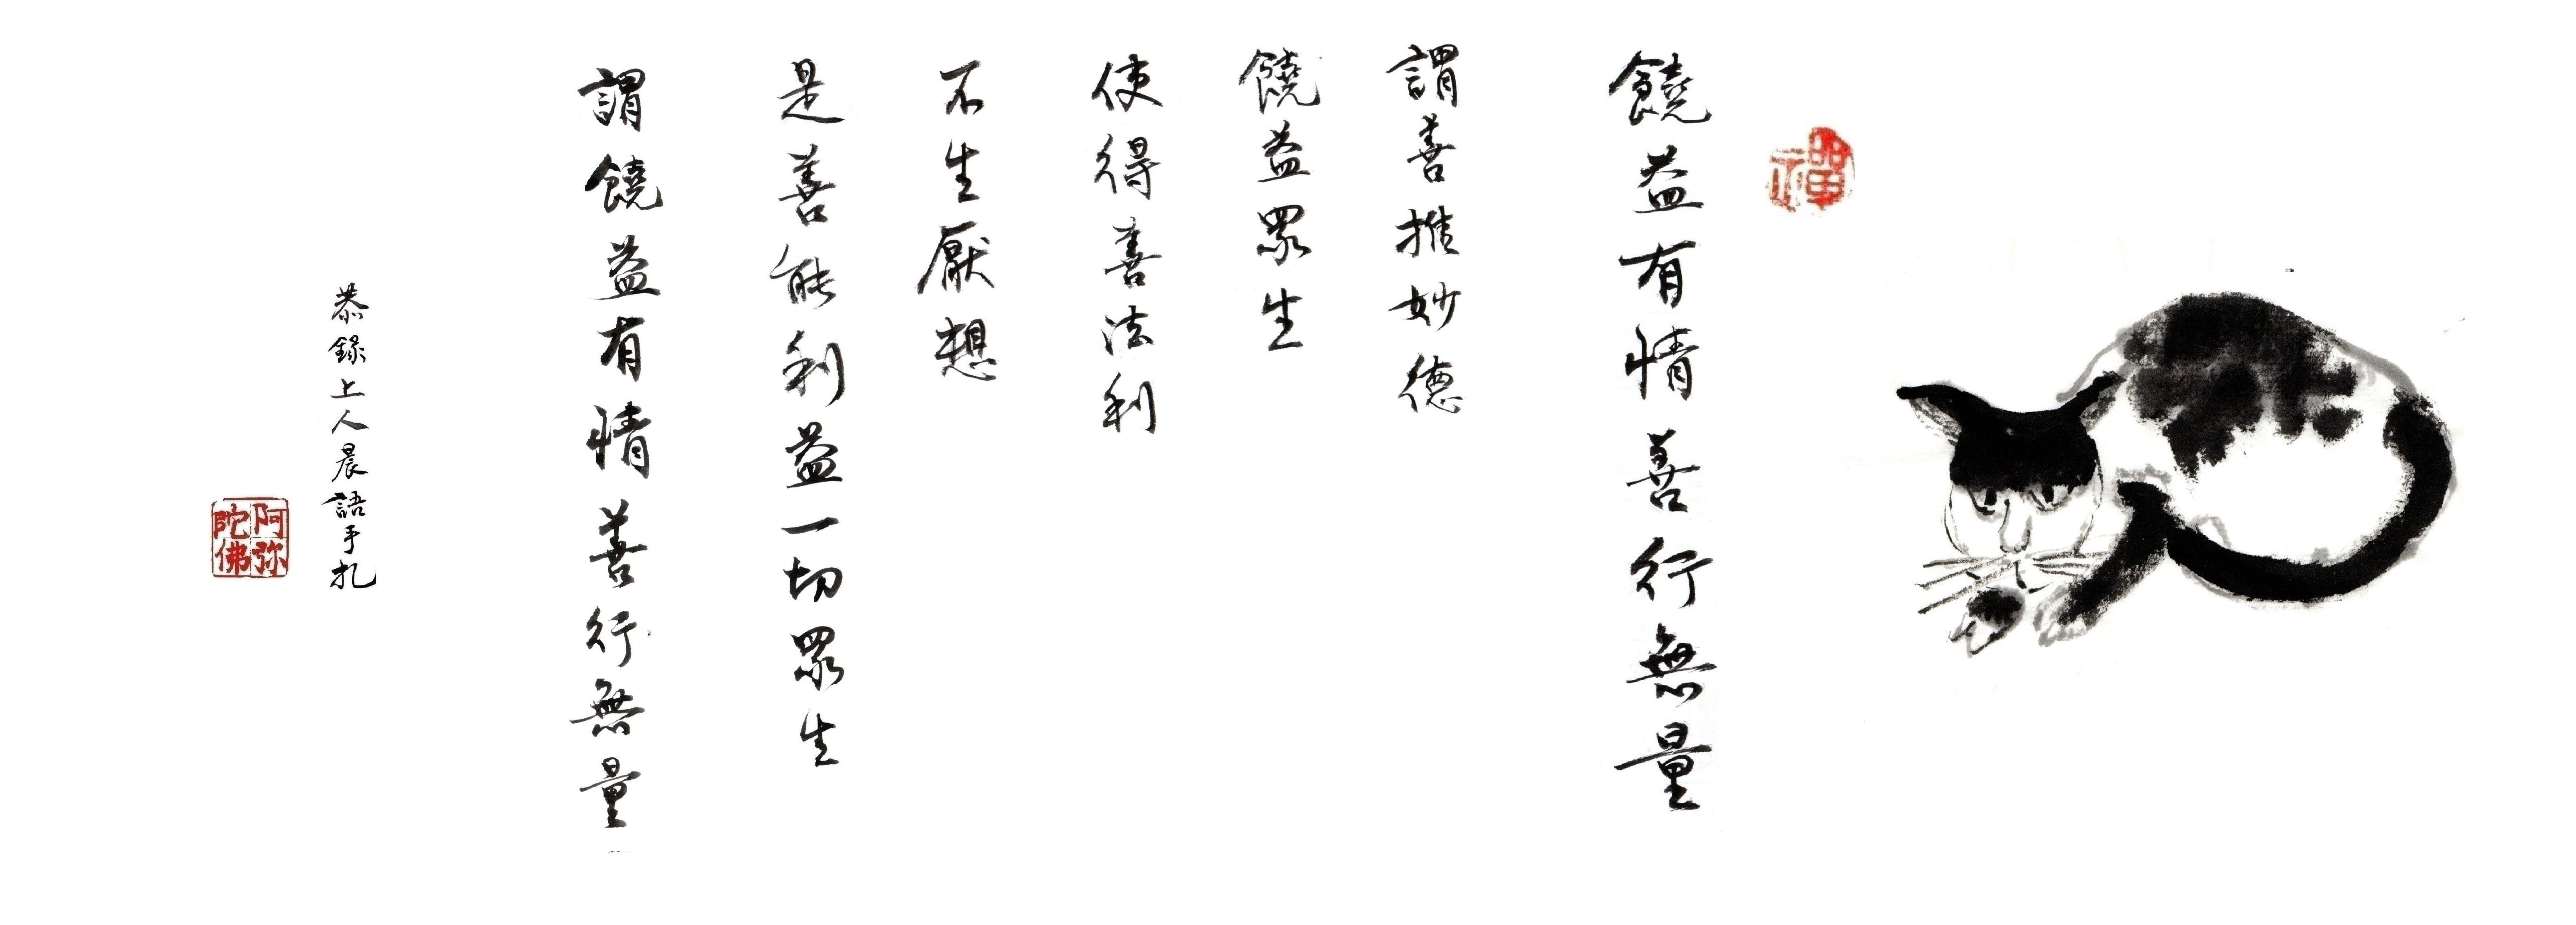 禪
饒益有情善行無量
謂善推妙德
饒益眾生
使得善法利
不生厭想
是善能利益一切眾生
謂饒益有情善行無量
恭錄上人晨語手札
阿弥
陀佛